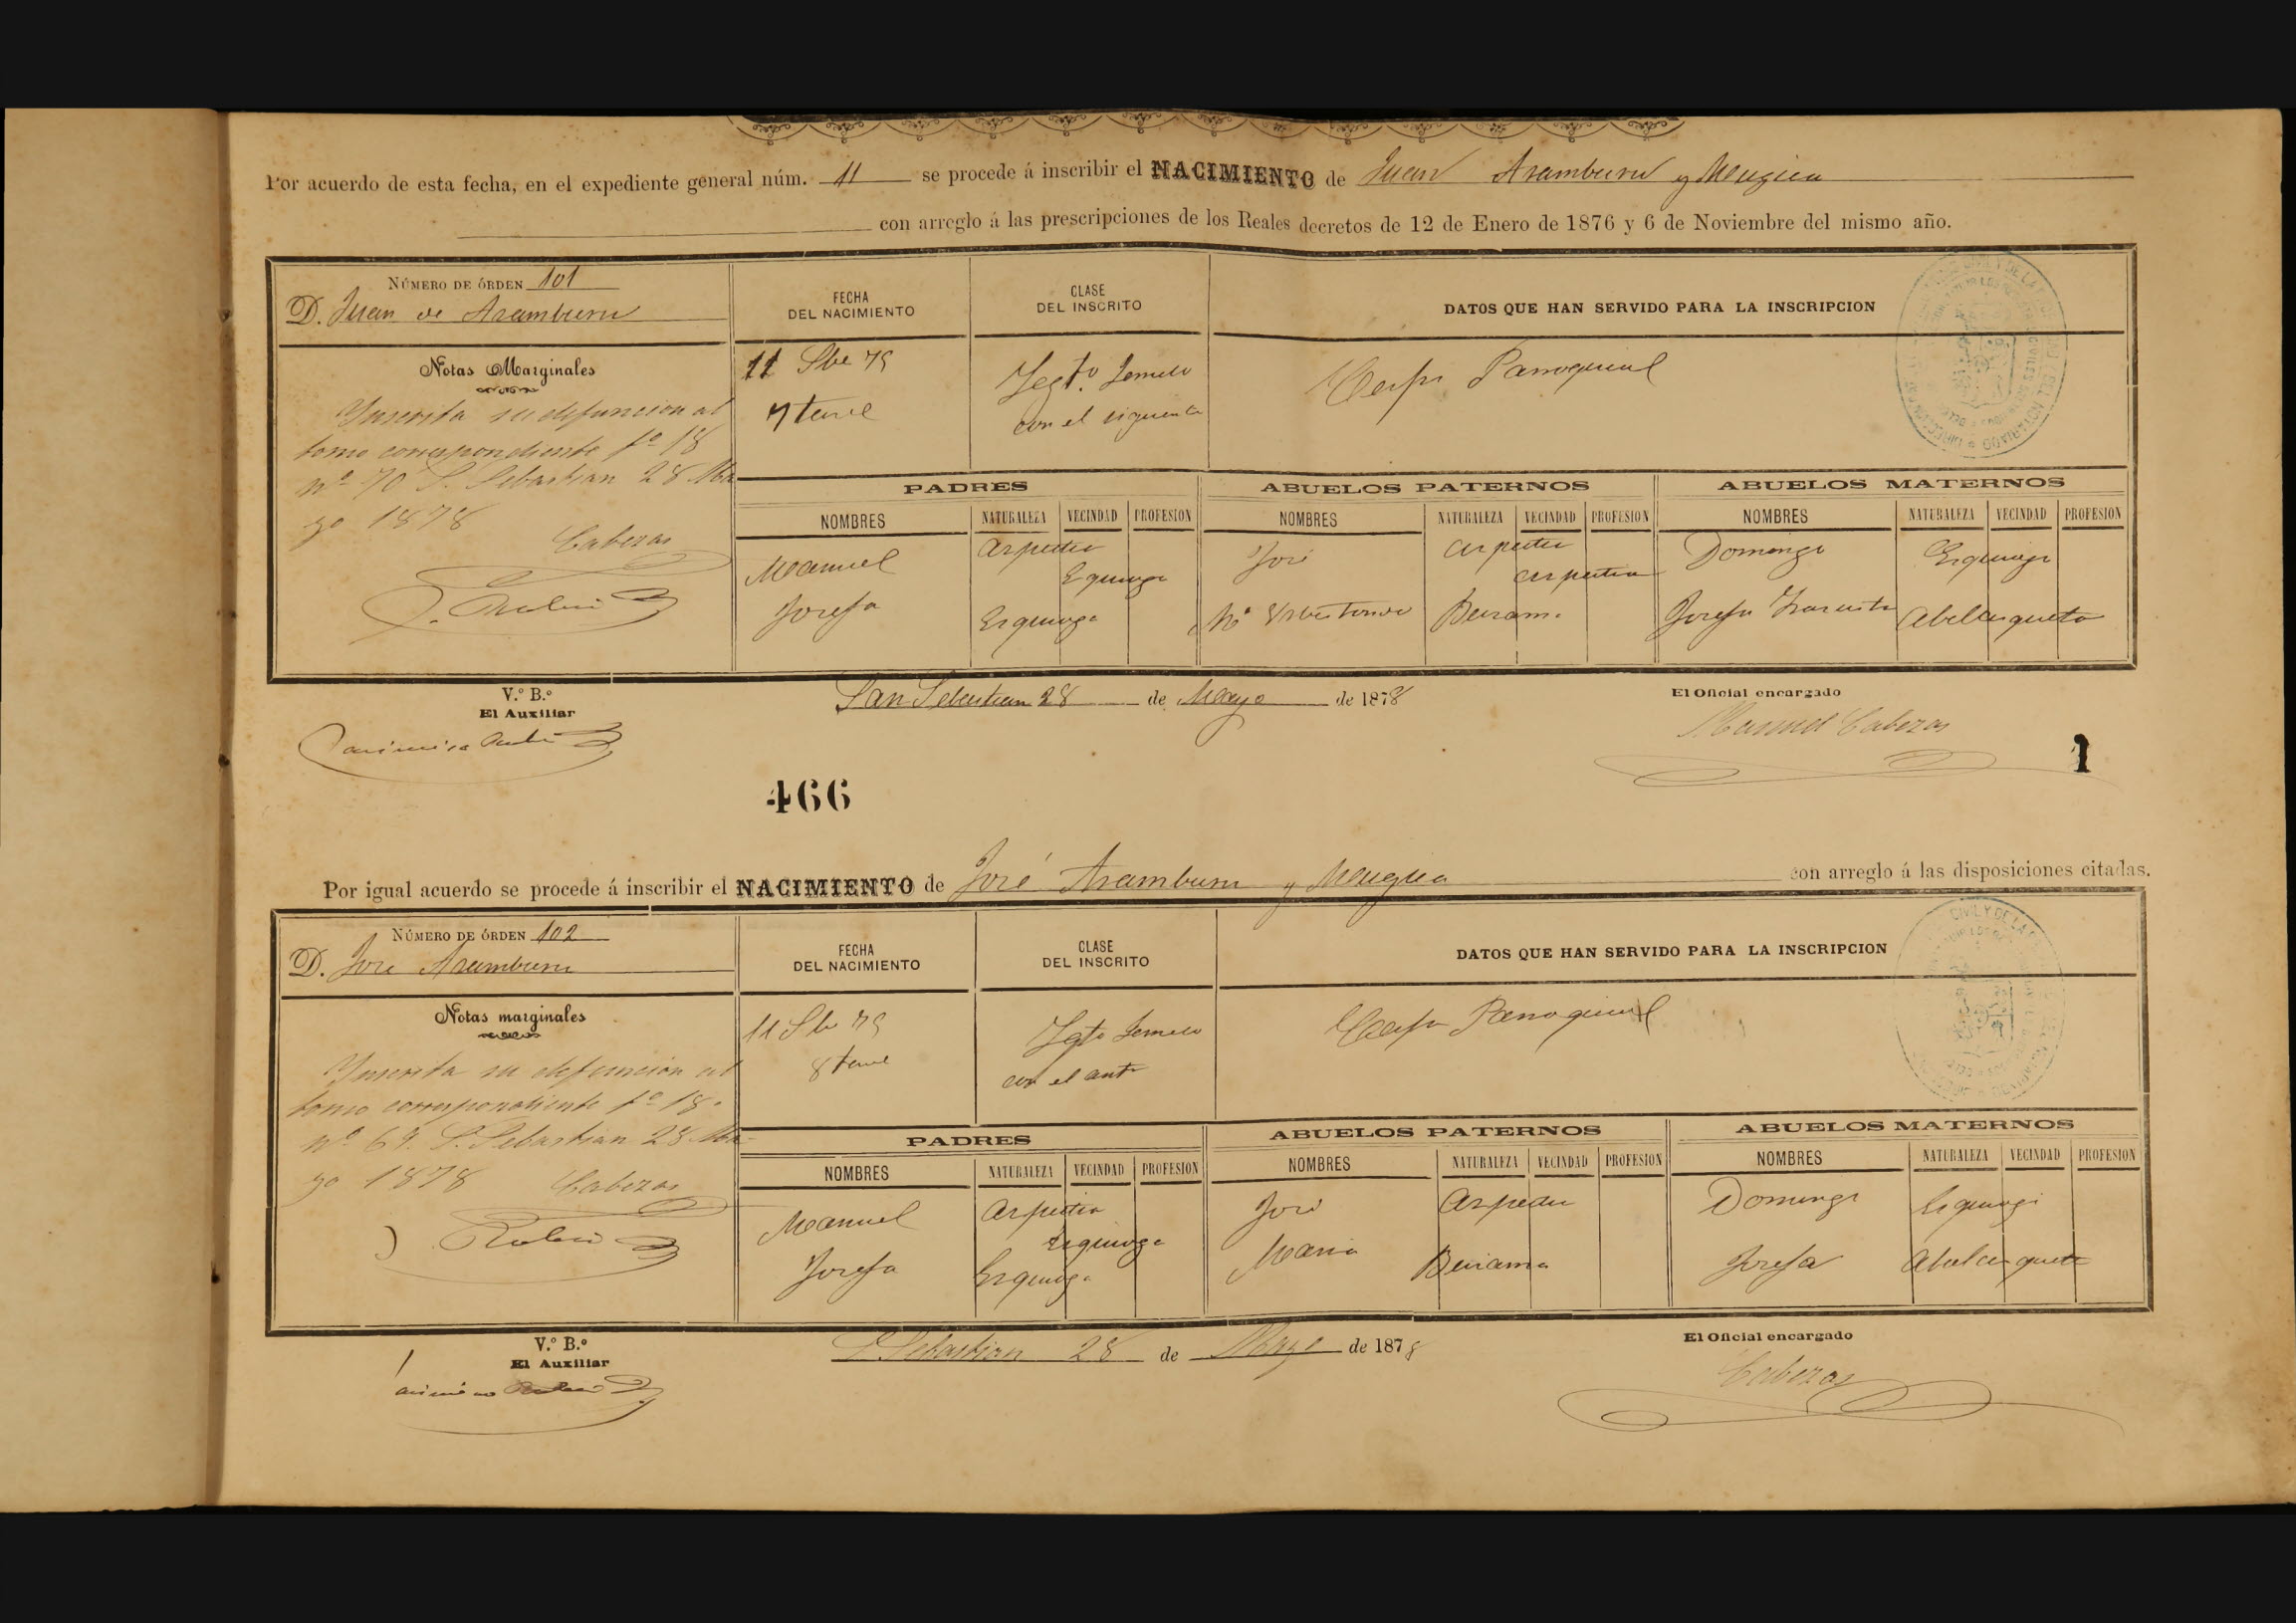 Por acuerdo de esta fecha, en el expediente general núm. 11 se procede á inscribir el NACIMIENTO de Juan Aramburu y Mugica
con arreglo á las prescripciones de los Reales decretos de 12 de Enero de 1876 y 6 de Noviembre del mismo año.
NÚMERO DE ÓRDEN 101
D. Juan de Aramburu
FECHA DEL NACIMIENTO
CLASE DEL INSCRITO
DATOS QUE HAN SERVIDO PARA LA INSCRIPCION
Notas Marginales
Inscrita su defuncion al
tomo correspondiente fº 18
nº 70 S. Sebastian 28 Ma
yo 1878
Cabezas
11 Sbe 75
7 tarde
Legtº Jemelo
con el siguiente
Parroquial
PADRES
ABUELOS PATERNOS
ABUELOS MATERNOS
NOMBRES NATURALEZA VECINDAD PROFESION NOMBRES NATURALEZA VECINDAD PROFESION NOMBRES NATURALEZA VECINDAD PROFESION
Manuel Azpeitia José Azpeitia Azpeitia Domingo
Josefa Josefa
V.º B.º
El Auxiliar
San Sebastian 28 de Mayo de 1878
El Oficial encargado
Manuel Cabezas
1
466
Por igual acuerdo se procede á inscribir el NACIMIENTO de José Aramburu y Mugica con arreglo á las disposiciones citadas.
NÚMERO DE ÓRDEN 102
D. Jose Aramburu
FECHA DEL NACIMIENTO
CLASE DEL INSCRITO
DATOS QUE HAN SERVIDO PARA LA INSCRIPCION
Notas marginales
Inscrita su defuncion al
tomo correspondiente fº 18.
nº 69. S. Sebastian 28 Ma-
yo 1878 Cabezas
11 Sbe 75
8 tarde
Legto Jemelo
con el antr
Parroquial
PADRES
ABUELOS PATERNOS
ABUELOS MATERNOS
NOMBRES NATURALEZA VECINDAD PROFESION NOMBRES NATURALEZA VECINDAD PROFESION NOMBRES NATURALEZA VECINDAD PROFESION
Manuel Azpeitia José Domingo
Josefa Maria Josefa
V.º B.º
El Auxiliar
S. Sebastian 28 de Mayo de 1878
El Oficial encargado
Cabezas